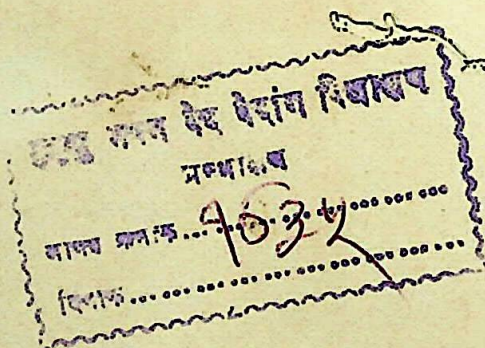 मुमुक्षु भवन वेद वेदांग विद्यालय
ग्रन्थालय
आगत क्रमांक...१०३५
दिनांक...